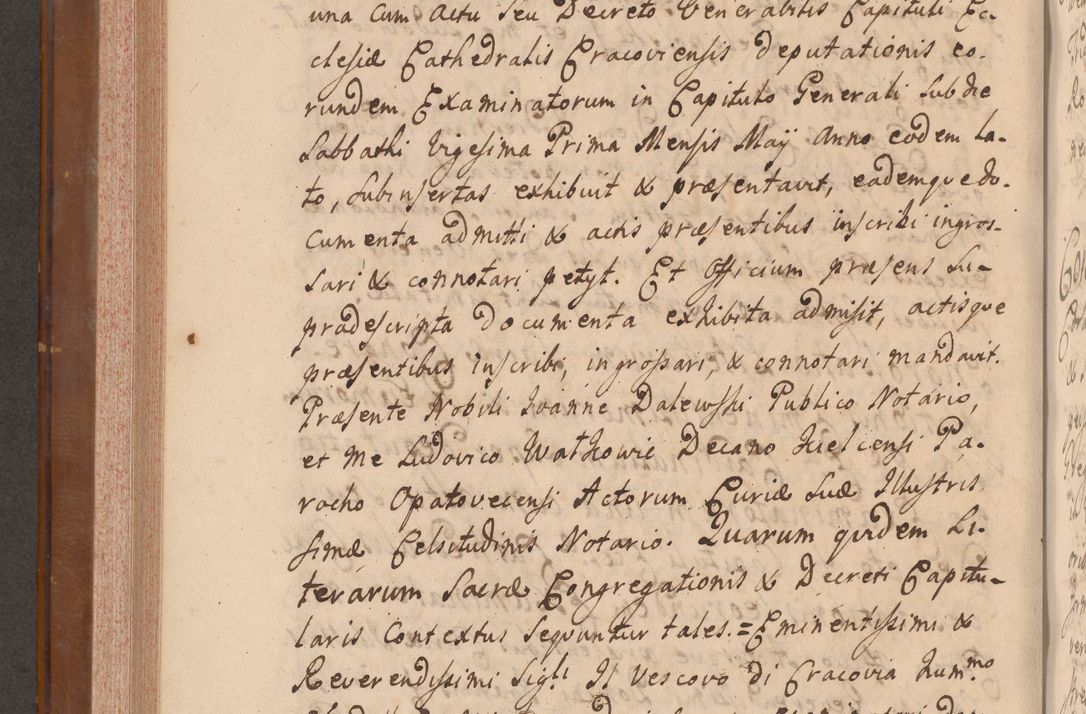 una cum actu seu Decreto Venerabilis Capituli Ec-
clesiæ Cathedralis Cracoviensis deputationis eo-
rundem Examinatorum in Capitulo Generali sub die
Sabbathi Vigesima Prima Mensis Maÿ Anno eodem la-
to, subinsertas exhibuit & præsentavit, eademque do-
cumenta admitti & actis præsentibus inscribi ingros-
sari & connotari petyt. Et Officium præsens su-
pradescripta documenta exhibita admisit, actisque
præsentibus inscribi, ingrossari, & connotari mandavit.
Præsente Nobili Ioanne Dalewski Publico Notario,
et Me Ludovico Watkowic Decano Kielcensi Pa-
rocho Opatovecensi Actorum Curiæ Suæ Illustris
simæ Celsitudinis Notario. Quarum quidem Li-
terarum Sacræ Congregationis & Decreti Capitu-
laris Contextus sequuntur tales. = Eminentissimi &
Reverendissimi Sigl: Il Vescovo di Cracovia hum:mo